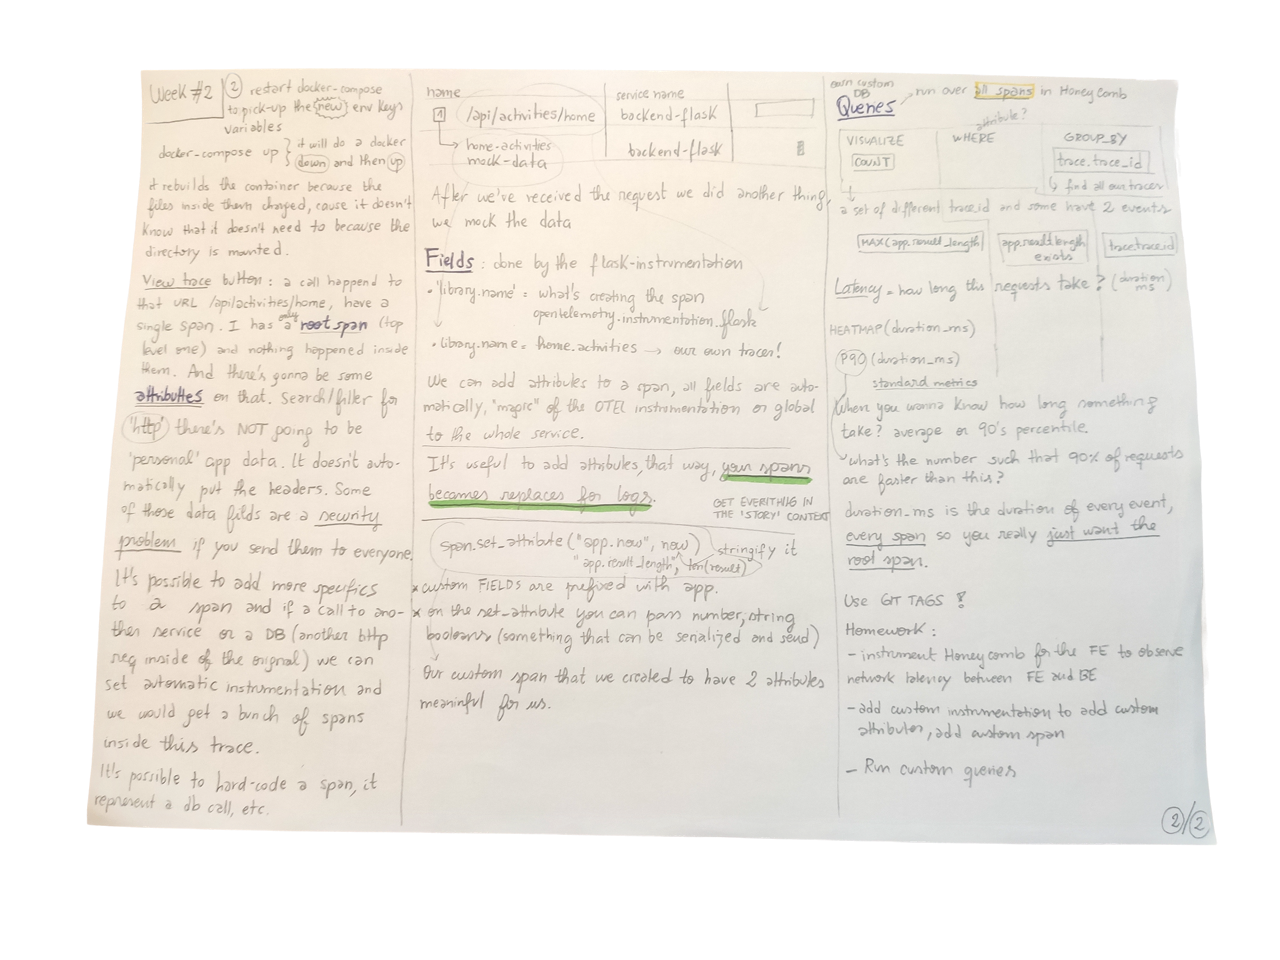 Week #2
② restart docker-compose
to pick-up the new env keys
variables
docker-compose up } it will do a docker
down and then up
it rebuilds the container because the
files inside them changed, cause it doesn't
know that it doesn't need to because the
directory is mounted.
View trace button: a call happend to
that URL /api/activities/home, have a
single span. I has only a root span (top
level one) and nothing happened inside
them. And there's gonna be some
attributtes on that. Search/filler for
'http' there's NOT going to be
'personal' app data. It doesn't auto-
matically put the headers. Some
of those data fields are a security
problem if you send them to everyone.
It's possible to add more specifics
to a span and if a call to ano-
ther service or a DB (another http
req inside of the original) we can
set automatic instrumentation and
we would get a bunch of spans
inside this trace.
It's possible to hard-code a span, it
represent a db call, etc.
name
service name
1 /api/activities/home
backend-flask
home-activities
mock-data
backend-flask
After we've received the request we did another thing,
we mock the data
Fields: done by the flask-instrumentation
• 'library.name' = what's creating the span
opentelemetry.instrumentation.flask
• library.name = home.activities → our own tracer!
We can add attributes to a span, all fields are auto-
matically, "magic" of the OTEL instrumentation or global
to the whole service.
It's useful to add attributes, that way, your spans
becames replaces for logs.
GET EVERITHING IN
THE 'STORY' CONTEXT
span.set_attribute ("app.now", now) stringify it
"app.result_length", len(result)
* custom FIELDS are prefixed with app.
* on the set_attribute you can pass number, string
booleans (something that can be serialized and send)
Our custom span that we created to have 2 attributes
meaningful for us.
earn custom
DB
Queries → run over all spans in Honeycomb
attribute?
VISUALIZE
WHERE
GROUP_BY
COUNT
trace.trace_id
↳ find all our traces
a set of different trace.id and some have 2 events
MAX(app.result_length)
app.result.length
exists
trace.trace_id
Latency = how long this requests take? (duration
ms)
HEATMAP(duration_ms)
P90 (duration_ms)
standard metrics
When you wanna know how long something
take? average or 90's percentile.
what's the number such that 90% of requests
are faster than this?
duration_ms is the duration of every event,
every span so you really just want the
root span.
Use GIT TAGS !
Homework:
- instrument Honeycomb for the FE to observe
network latency between FE and BE
- add custom instrumentation to add custom
attributes, add custom span
- Run custom queries
2/2